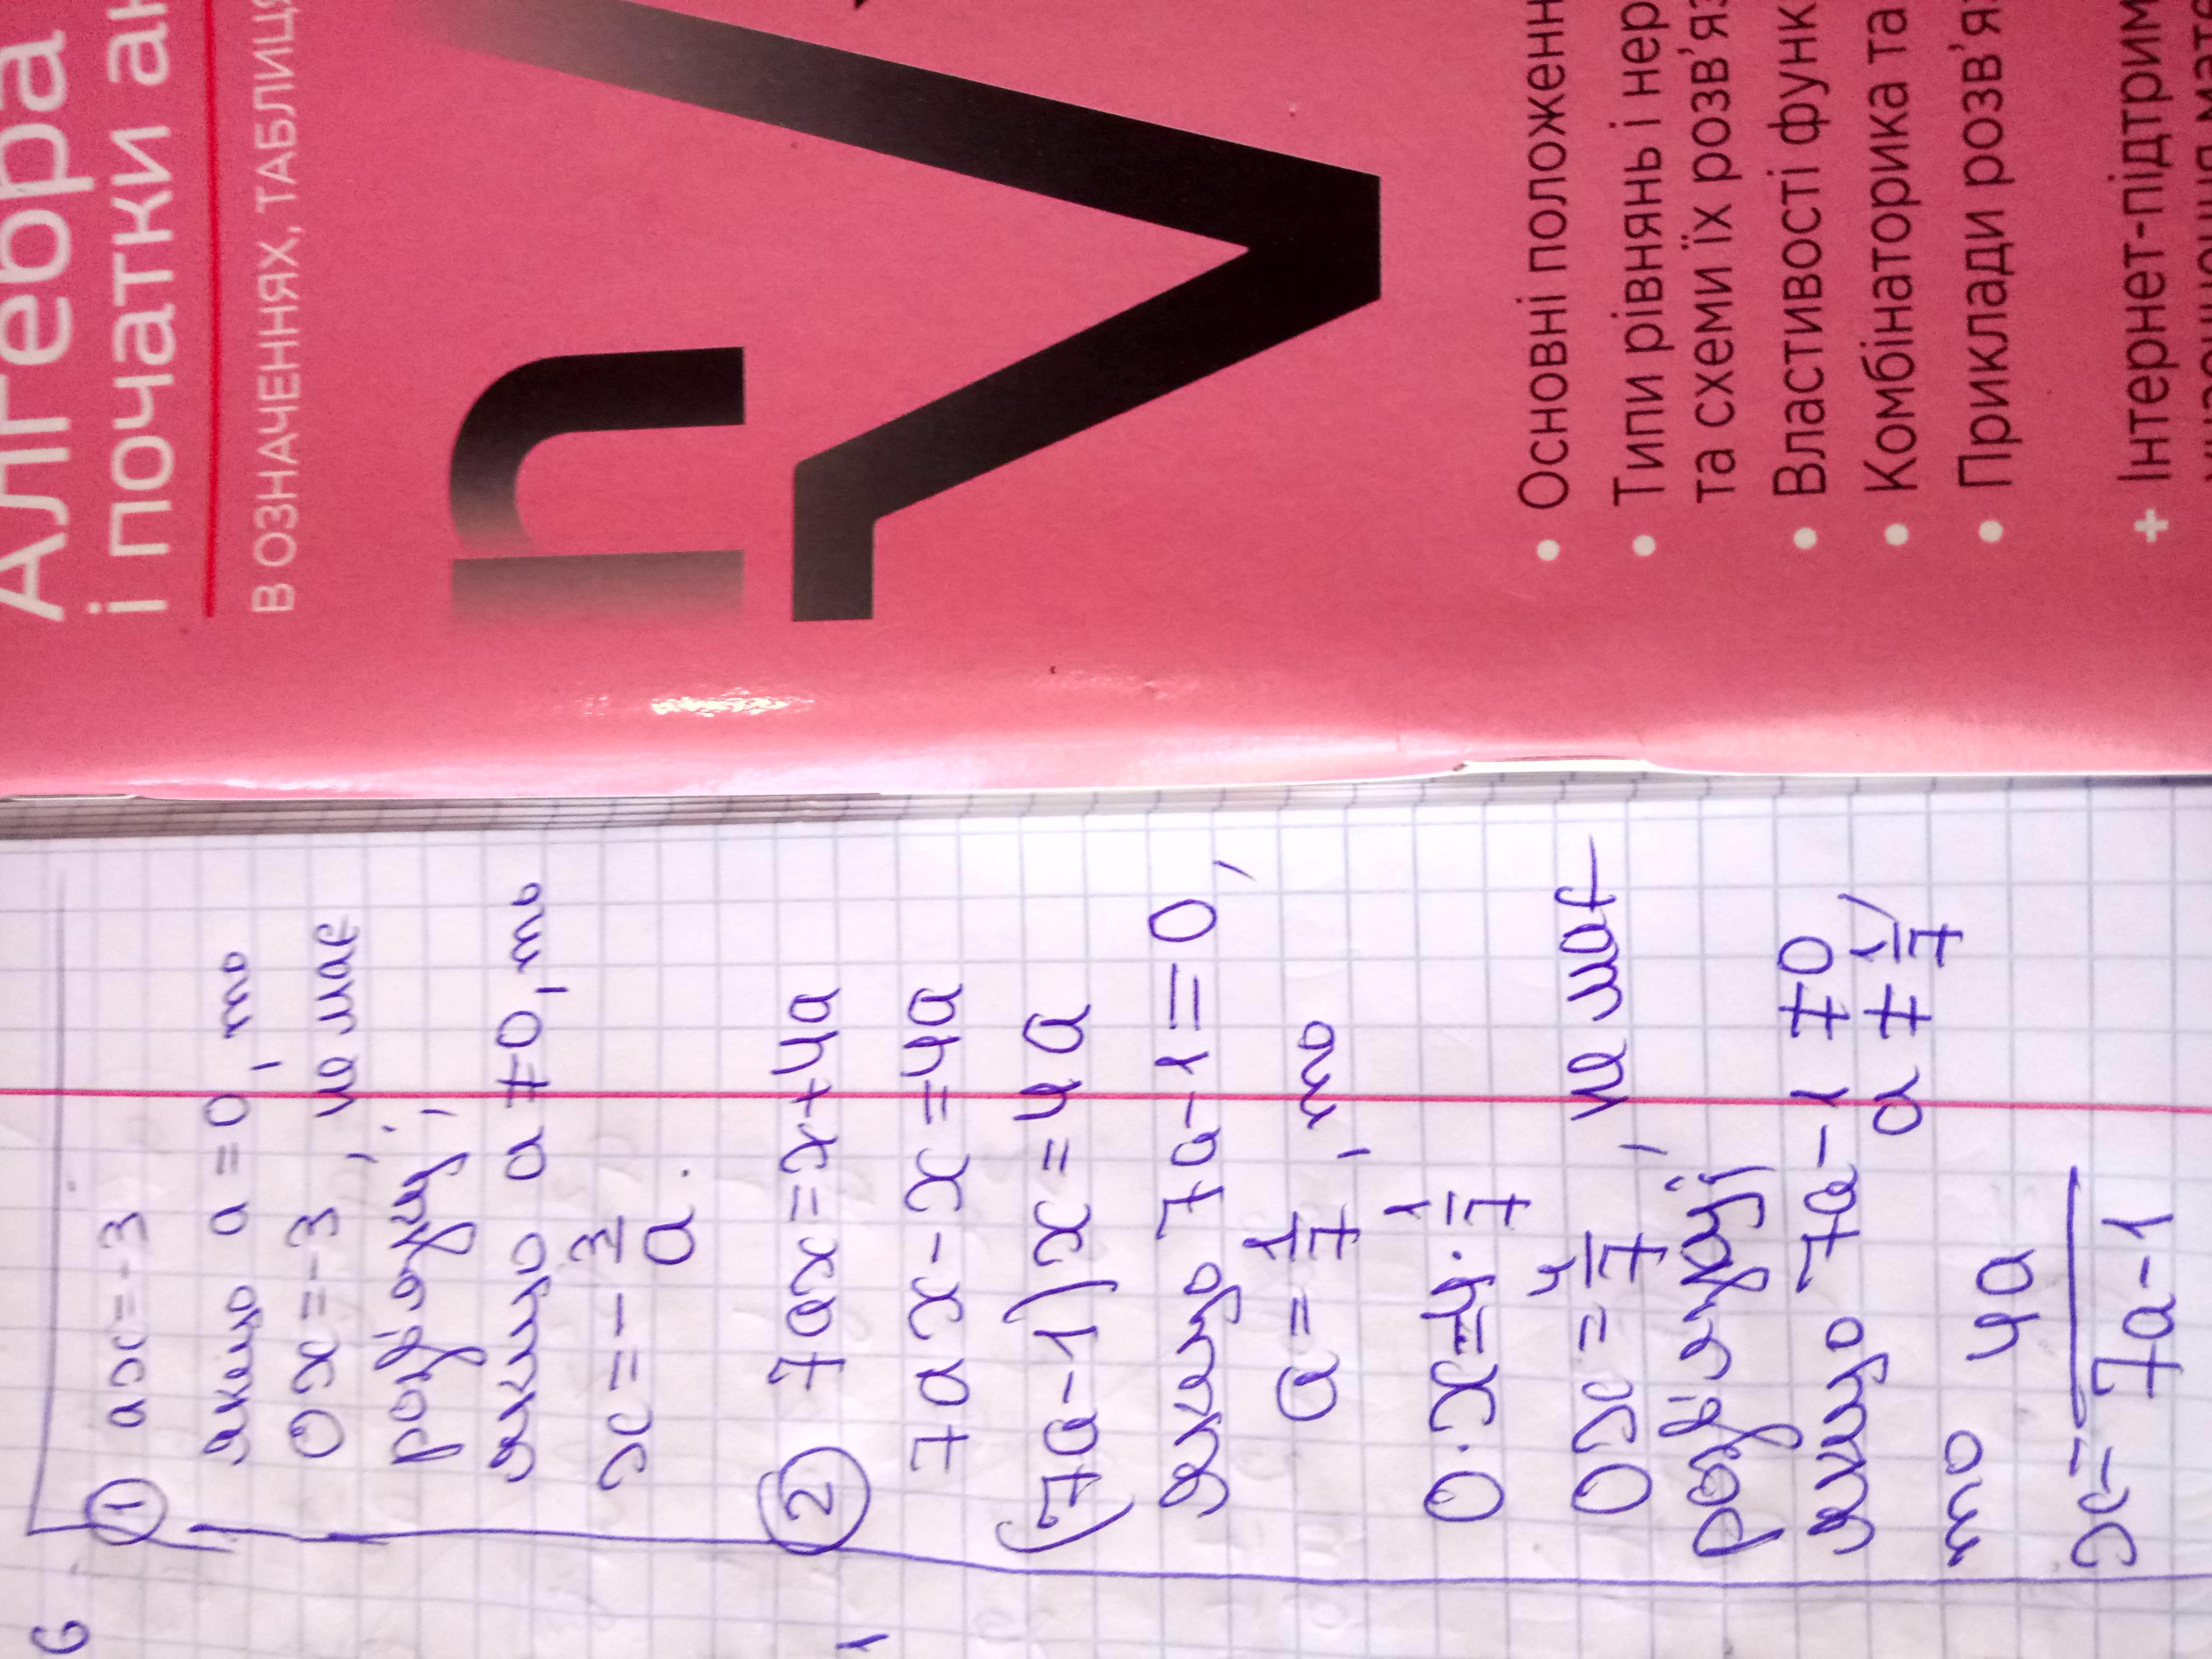 Алгебра
і початки ан
В ОЗНАЧЕННЯХ, ТАБЛИЦЯ
• Основні положенн
• Типи рівнянь і нер
та схеми їх розв'яз
• Властивості функ
• Комбінаторика та
• Приклади розв'я
+ Інтернет-підтрим
6
① ax=-3
якщо a=0, то
0x=-3, не має
розв'язку;
якщо a≠0, то
x=-3/a.
② 7ax=x+4a
7ax-x=4a
(7a-1)x=4a
якщо 7a-1=0,
a=1/7, то
0·x=4·1/7
0x=4/7, не має
розв'язку;
якщо 7a-1≠0
a≠1/7,
то
x=4a/7a-1